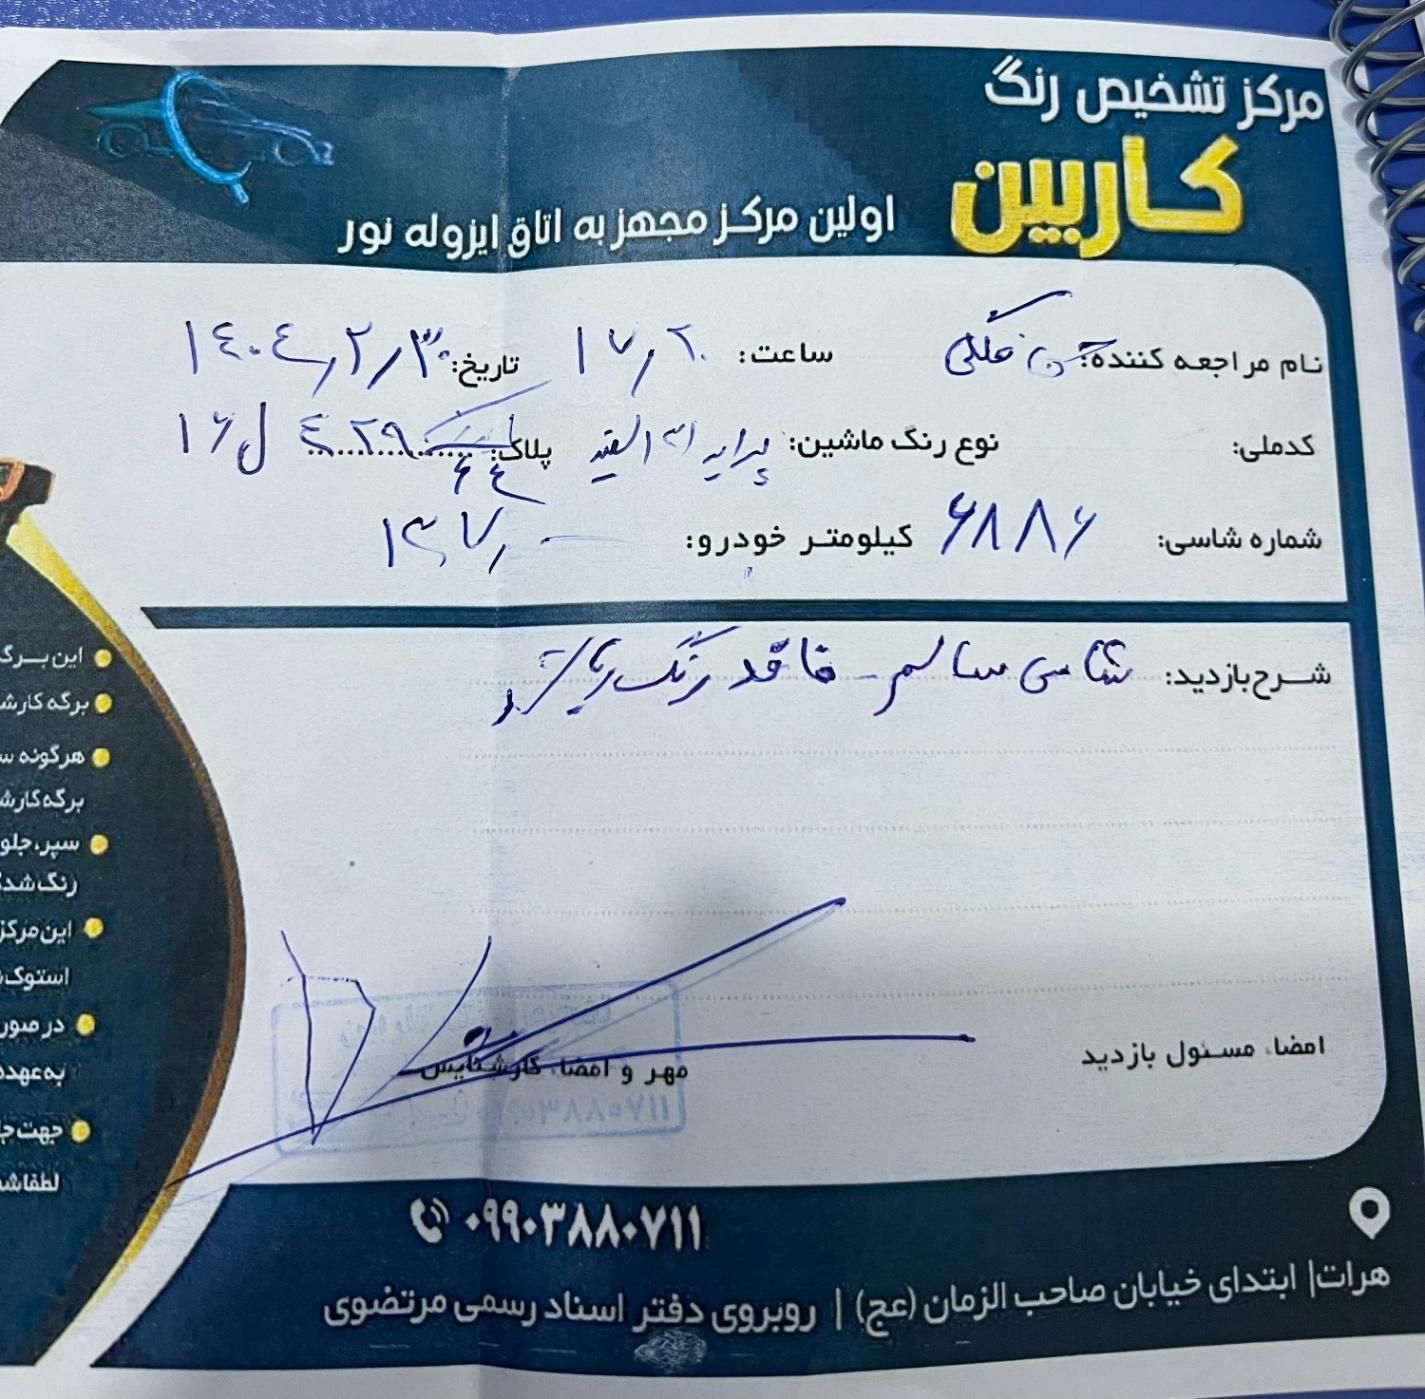 مرکز تشخیص رنگ
کاربین
اولین مرکز مجهز به اتاق ایزوله نور
نام مراجعه کننده: ساعت: ۱۷٫۲۰ تاریخ: ۱۴۰۴٫۲٫۳۰
کدملی: نوع رنگ ماشین: پراید ۱۳۱ سفید پلاک: ۴۲۹ ل ۱۶
۶۴
شماره شاسی: ۶۸۸۶ کیلومتر خودرو: ۱۳۷٫۰
شرح بازدید: شاسی سالم - فاقد رنگ
امضاء مسئول بازدید
مهر و امضاء کارشناس
۰۹۹۰۳۸۸۰۷۱۱
هرات| ابتدای خیابان صاحب الزمان (عج) | روبروی دفتر اسناد رسمی مرتضوی
این برگه
برگه کارشـ
هرگونه سـ
برگه کارشـ
سپر، جلو
رنگ شده
این مرکز
استوک
در صور
به عهده
جهت جا
لطفا شـ